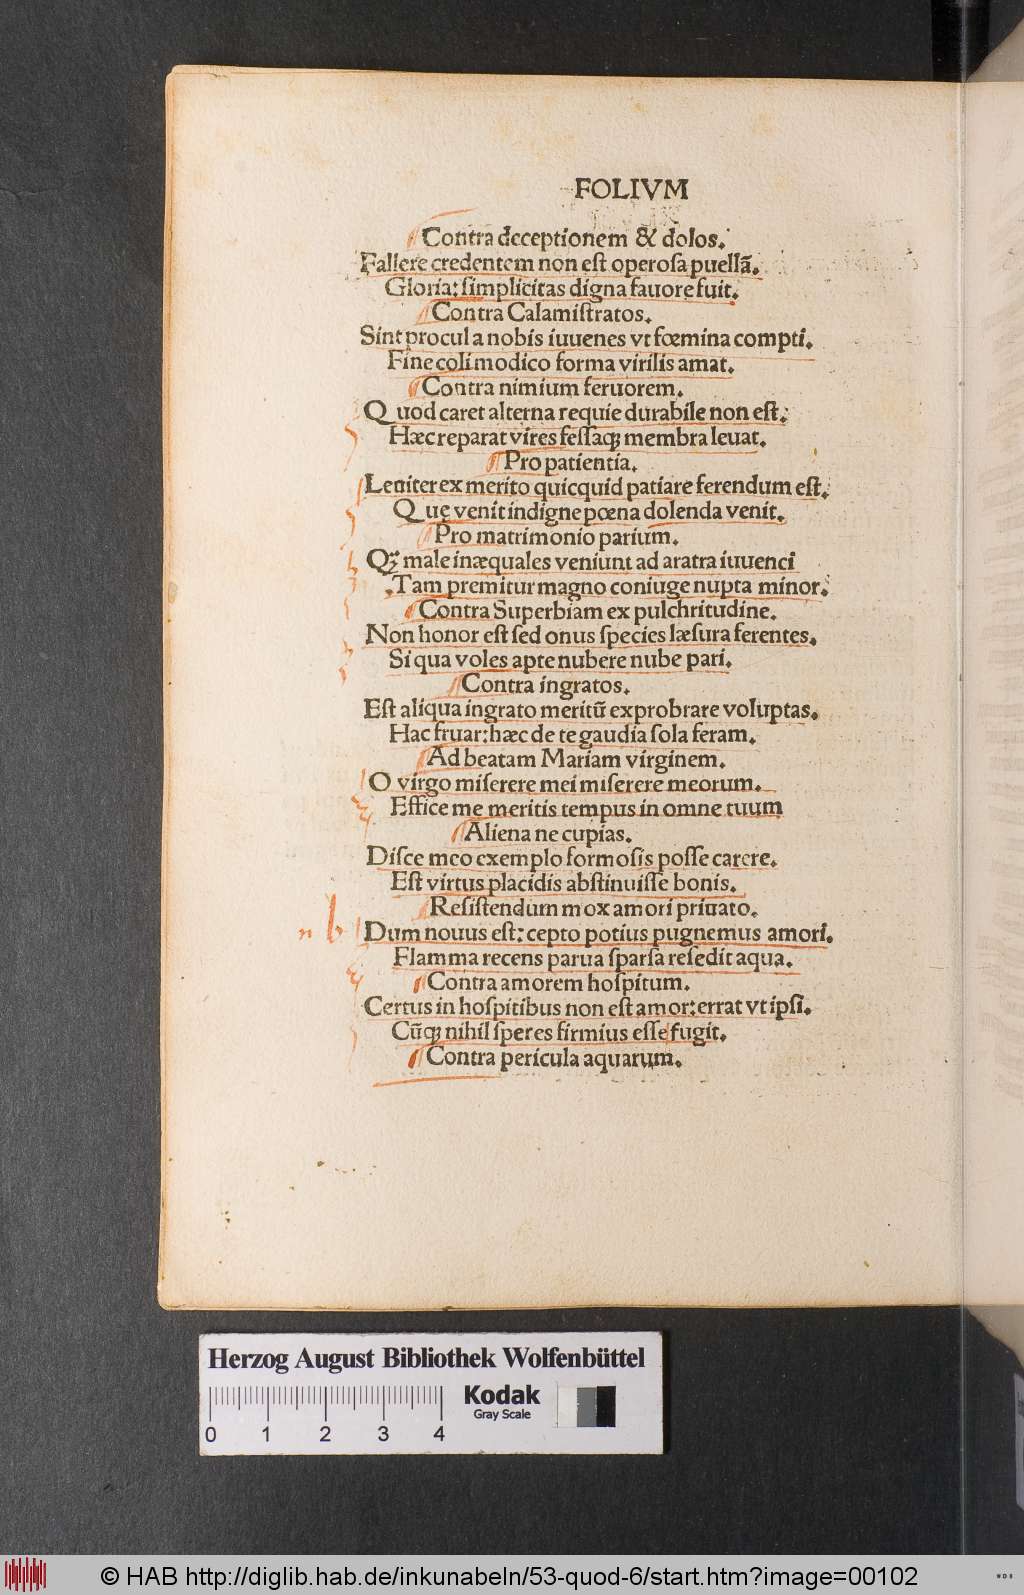 FOLIVM
Contra deceptionem & dolos.
Fallere credentem non est operosa puellã.
Gloria: simplicitas digna fauore fuit.
Contra Calamistratos.
Sint procul a nobis iuuenes vt fœmina compti.
Fine coli modico forma virilis amat.
Contra nimium feruorem.
Quod caret alterna requie durabile non est.
Hæc reparat vires fessaqȝ membra leuat.
Pro patientia.
Leniter ex merito quicquid patiare ferendum est.
Quę venit indigne pœna dolenda venit.
Pro matrimonio parium.
Qȝ̃ male inæquales veniunt ad aratra iuuenci
Tam premitur magno coniuge nupta minor.
Contra Superbiam ex pulchritudine.
Non honor est sed onus species læsura ferentes.
Si qua voles apte nubere nube pari.
Contra ingratos.
Est aliqua ingrato meritũ exprobrare voluptas.
Hac fruar: hæc de te gaudia sola feram.
Ad beatam Mariam virginem.
O virgo miserere mei miserere meorum.
Effice me meritis tempus in omne tuum
Aliena ne cupias.
Disce meo exemplo formosis posse carere.
Est virtus placidis abstinuisse bonis.
Resistendum mox amori priuato.
n b Dum nouus est: cepto potius pugnemus amori.
Flamma recens parua sparsa resedit aqua.
Contra amorem hospitum.
Certus in hospitibus non est amor: errat vt ipsi.
Cũqȝ nihil speres firmius esse fugit.
Contra pericula aquarum.
Herzog August Bibliothek Wolfenbüttel
Kodak
Gray Scale
0 1 2 3 4
© HAB http://diglib.hab.de/inkunabeln/53-quod-6/start.htm?image=00102